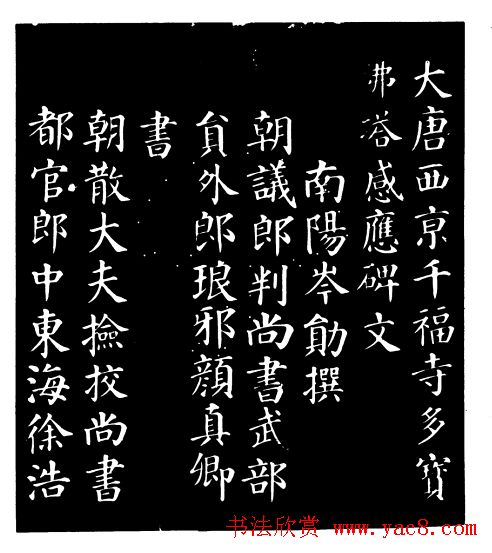 大唐西京千福寺多寶
弗塔感應碑文
南陽岑勛撰
朝議郎判尚書武部
貟外郎琅邪顏真卿
書
朝散大夫撿挍尚書
都官郎中東海徐浩
书法欣赏 www.yac8.com